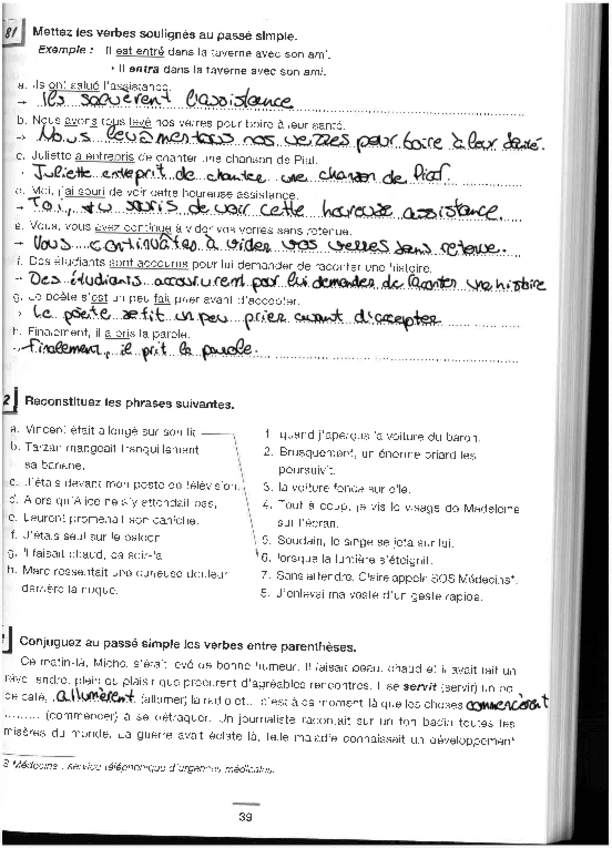 81 Mettez les verbes soulignés au passé simple.
Exemple : Il est entré dans la taverne avec son ami.
• Il entra dans la taverne avec son ami.
a. Ils ont salué l'assistance.
→ Ils saluèrent l'assistance
b. Nous avons tous levé nos verres pour boire à leur santé.
→ Nous levâmes tous nos verres pour boire à leur santé.
c. Juliette a entrepris de chanter une chanson de Piaf.
• Juliette entreprit de chanter une chanson de Piaf.
d. Moi, j'ai souri de voir cette heureuse assistance.
→ Toi, tu souris de voir cette heureuse assistance.
e. Vous, vous avez continué à vider vos verres sans retenue.
→ Vous continuâtes à vider vos verres sans retenue.
f. Des étudiants sont accourus pour lui demander de raconter une histoire.
→ Des étudiants accoururent pour lui demander de raconter une histoire
g. Le poète s'est un peu fait prier avant d'accepter.
→ Le poète se fit un peu prier avant d'accepter
h. Finalement, il a pris la parole.
→ Finalement, il prit la parole.
2 Reconstituez les phrases suivantes.
a. Vincent était allongé sur son lit
b. Tarzan mangeait tranquillement
sa banane.
c. J'étais devant mon poste de télévision.
d. Alors qu'Alice ne s'y attendait pas,
e. Laurent promenait son caniche.
f. J'étais seul sur le balcon
g. Il faisait chaud, ce soir-là.
h. Marc ressentait une curieuse douleur
derrière la nuque.
1. quand j'aperçus la voiture du baron.
2. Brusquement, un énorme briard les
poursuivit.
3. la voiture fonça sur elle.
4. Tout à coup, je vis le visage de Madeleine
sur l'écran.
5. Soudain, le singe se jeta sur lui.
6. lorsque la lumière s'éteignit.
7. Sans attendre, Claire appela SOS Médecins*.
8. J'enlevai ma veste d'un geste rapide.
Conjuguez au passé simple les verbes entre parenthèses.
Ce matin-là, Michel s'était levé de bonne humeur. Il faisait beau, chaud et il avait fait un
rêve tendre, plein du plaisir que procurent d'agréables rencontres. Il se servit (servir) un bol
de café, allumèrent (allumer) la radio et... c'est à ce moment-là que les choses commencèrent
......... (commencer) à se détraquer. Un journaliste racontait sur un ton badin toutes les
misères du monde. La guerre avait éclaté là, telle maladie connaissait un développement
S Médecins : service téléphonique d'urgences médicales.
39